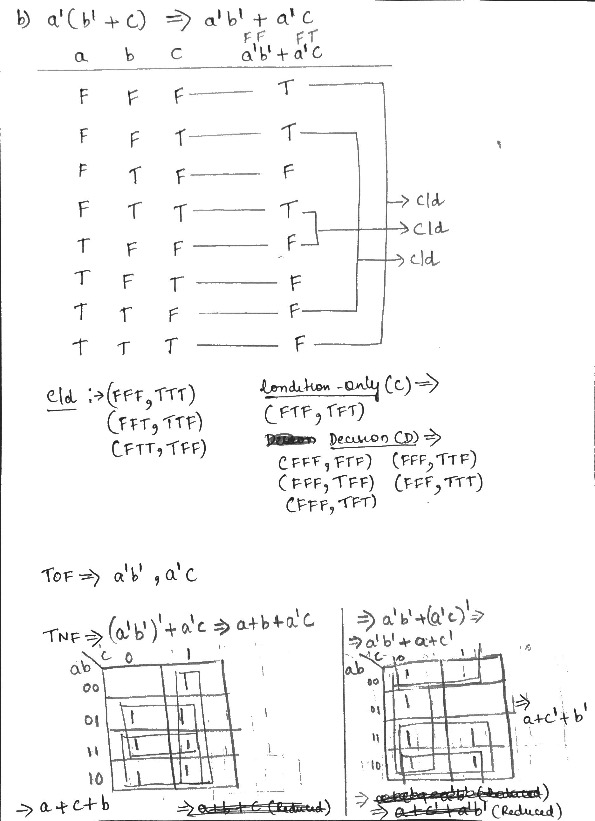 b) a'(b'+c) ⇒ a'b' + a'c
FF FT
a b c a'b' + a'c
F F F T
F F T T
F T F F
F T T T → c/d
T F F F → c/d
T F T F → c/d
T T F F
T T T F
c/d :→ (FFF, TTT)
(FFT, TTF)
(FTT, TFF)
Condition-only (C) ⇒
(FTF, TFT)
Decision (D) ⇒
(FFF, FTF) (FFF, TTF)
(FFF, TFF) (FFF, TTT)
(FFF, TFT)
TOF ⇒ a'b', a'c
TNF ⇒ (a'b')' + a'c ⇒ a+b+a'c
ab c 0 1
00 1
01 1 1
11 1 1
10 1 1
⇒ a+c+b
⇒ a+b+c (Reduced)
⇒ a'b' + (a'c)' ⇒
⇒ a'b' + a + c'
ab c 0 1
00 1 1
01 1
11 1 1
10 1 1
⇒ a+c'+b'
⇒ a+c'+a'b' (Reduced)